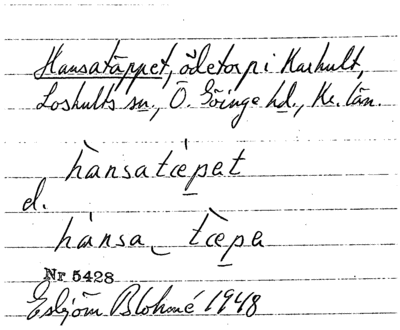 Hansatäppet, ödetorp i Karhult,
Loshults sn., Ö. Göinge hd., Kr. län.
hànsatæpet
el.
hánsa_ tæpe
Nr 5428
Esbjörn Blohmé 1948